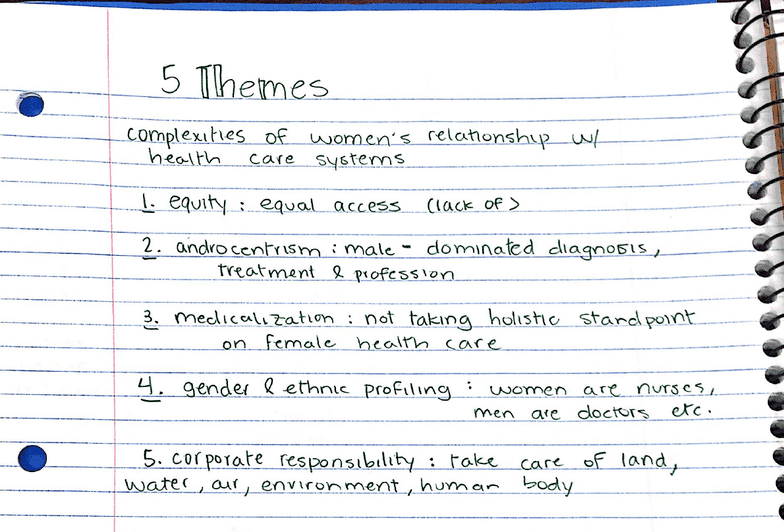 5 Themes
complexities of women's relationship w/
health care systems
1. equity : equal access (lack of)
2. androcentrism : male - dominated diagnosis,
treatment & profession
3. medicalization : not taking holistic standpoint
on female health care
4. gender & ethnic profiling : women are nurses,
men are doctors etc.
5. corporate responsibility : take care of land,
water, air, environment, human body